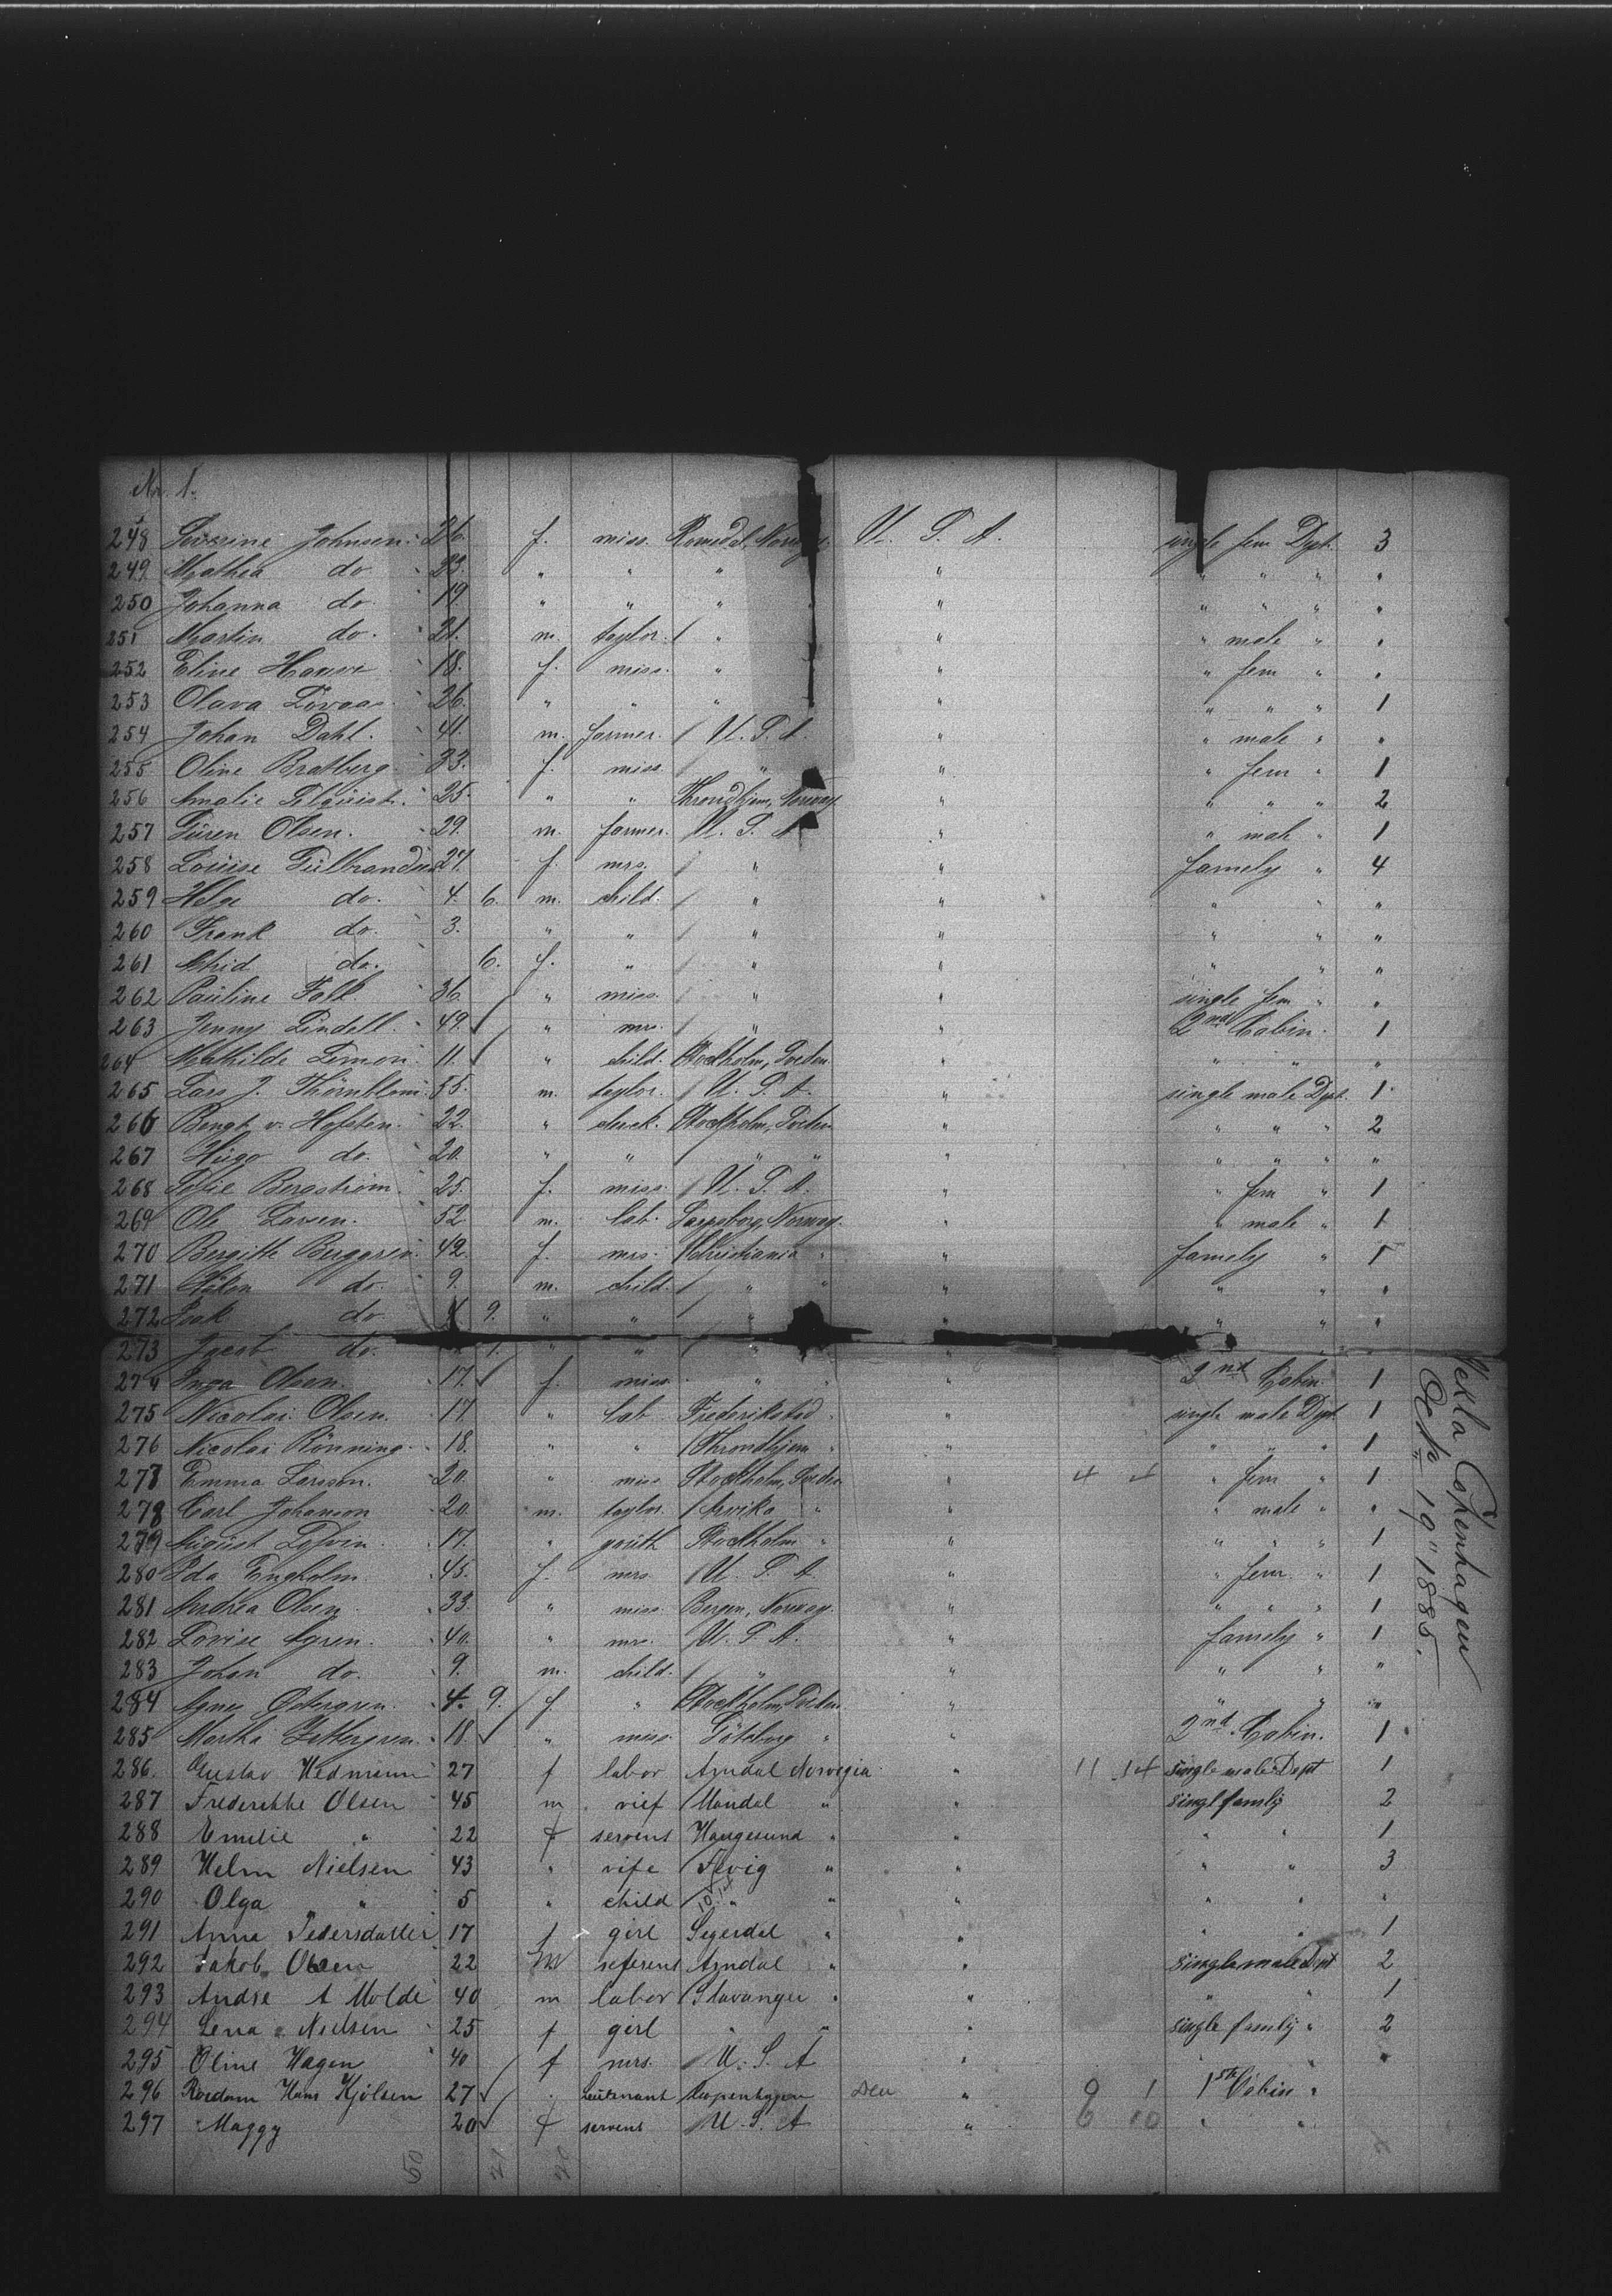 No. 1.
248 Severine Johnsen 26. f. miss. Romsdal, Norway U. S. A. single fem Dept. 3
249 Mathea do 23. " " " " " " " "
250 Johanna do. 19 " " " " " " " "
251 Martin do. 21. m. taylor. " " " male " "
252 Eline 18. f. miss. " " " fem " "
253 Olava Lövaas 26. " " " " " " " 1
254 Johan Dahl. 41. m. farmer. U. S. A. " " male " "
255 Oline Bratberg 33. f. miss. " " " fem " 1
256 Amalie 25. " " Throndhjem, Norway " " " " 2
257 Sören Olsen. 29. m. farmer. U. S. A " " male " 1
258 Louise Gulbrandsen 27. f. mrs. " " famely " 4
259 Helge do. 4. 6. m. child. " " " " "
260 Frank do. 3. " " " " " " "
261 do. 6. f. " " " " " "
262 Pauline Falk. 36 " miss. " " single fem " "
263 Jenny Lindell. 49. " mrs. " " 2nd Cabin. 1
264 Mathilde 11. " child. Stockholm, Sveden " " " "
265 Lars J. Thörnblom. 55. m. taylor. U. S. A. " single male Dept. 1
266 Bengt v. Hofsten. 22. " clerk. Stockholm, Sveden " " " " 2
267 Hugo do. 20. " " " " " " " " "
268 Sofie Bergström. 25. f. miss. U. S. A. " " fem " 1
269 Ole Larsen. 52 m. lab. Sarpsborg, Norway. " " male " 1
270 Bergitte Berggren. 42. f. mrs. Christiania " " famely " 1
271 do. 9. m. child. " " " " "
272 do 9. " " " " " " "
273 Jacob do. " " " " "
274 Inga Olsen. 17. f. miss. " " " 2nd Cabin. 1
275 Nicolai Olsen. 17. " lab Frederikstad " " single male Dept 1
276 Nicolai Rönning. 18. " " Throndhjem " " " " " 1
277 Emma Larsson. 20. " miss Stockholm, Sveden " 4 4 " fem " 1
278 Carl Johanson 20. m. taylor. Arvika " " " male " "
279 August 17. " youth Stockholm " " " " " 1
280 Ida Engholm. 45. f. mrs U. S. A. " " fem. " 1
281 Andrea Olsen 33. " miss. Bergen, Norway. " " " " 1
282 Lovise Agren. 40. " mrs. U. S. A. " famely " 1
283 Johan do. 9. m. child. " " " " "
284 Agnes Östergren. 4. 9. f. " Stockholm, Sveden " " " "
285 Martha Zettergren. 18. " miss. Göteborg " " 2nd Cabin. 1
286. Gustav 27 f labor Arndal Norvegia " 11 14 single male Dept 1
287 Frederikke Olsen 45 m vief Mandal " " singl famly 2
288 Emilie " 22 f servent Haugesund " " " " 1
289 Helm Nielsen 43 " vife Fevig " " " " 3
290 Olga " 5 " child " " " " " "
291 Anna Pedersdatter 17 f girl " " " " 1
292 Jakob Olsen 22 m Arndal " " single male Dept 2
293 Andre A Molde 40 m labor Stavanger " " " " 1
294 Lena Nielsen 25 f girl " " " single famly " 2
295 Oline Hagen 40 f mrs. U. S. A " " " "
296 Hans Hjölsen 27 Leutenant Den " 9 1 1st Cabin "
297 Maggy 20 f servent U. S. A " 6 10 " "
50 21 20
Hekla Copenhagen
Octb 19" 1885.